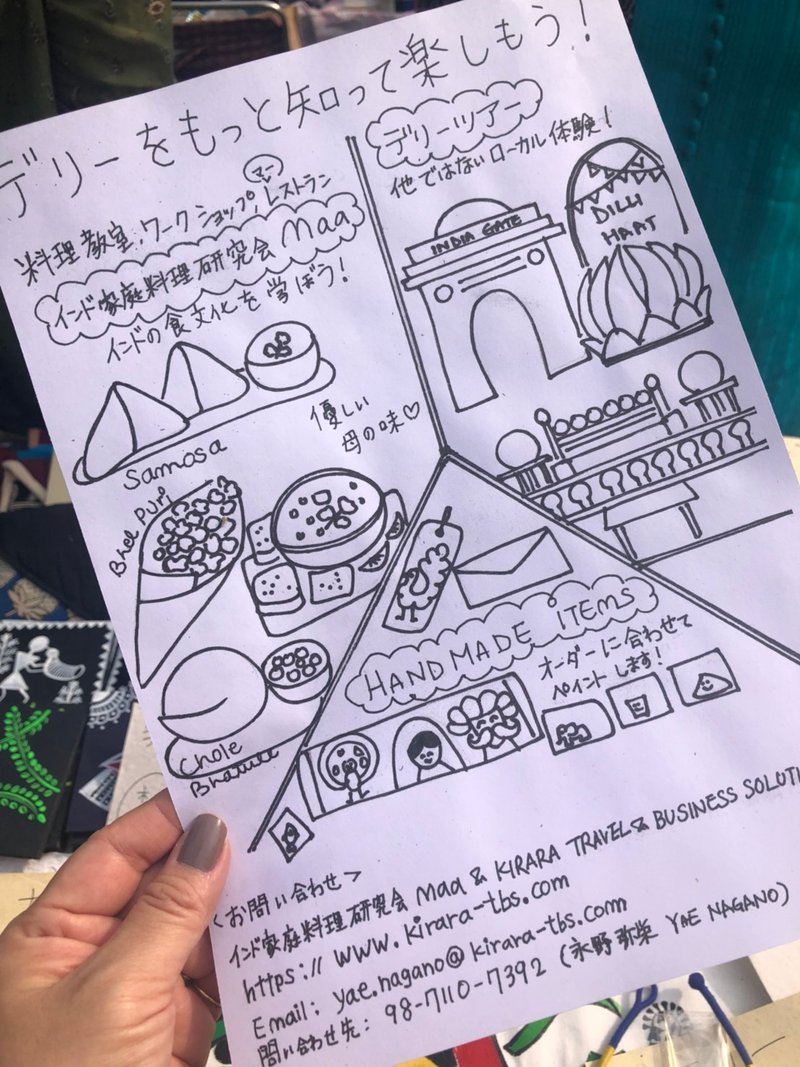 デリーをもっと知って楽しもう!
料理教室.ワークショップ レストラン
マー
インド家庭料理研究会 maa
インドの食文化を学ぼう!
優しい
母の味♡
Samosa
Bhel puri
Chole
Bhature
デリーツアー
他ではないローカル体験!
INDIA GATE
DILLI
HAAT
HANDMADE iTEMS
オーダーに合わせて
ペイントします!
<お問い合わせ>
インド家庭料理研究会 maa & KIRARA TRAVEL & BUSINESS SOLUTI
https://www.kirara-tbs.com
Email: yae.nagano@kirara-tbs.com
問い合わせ先: 98-7110-7392 (永野弥栄 YAE NAGANO)